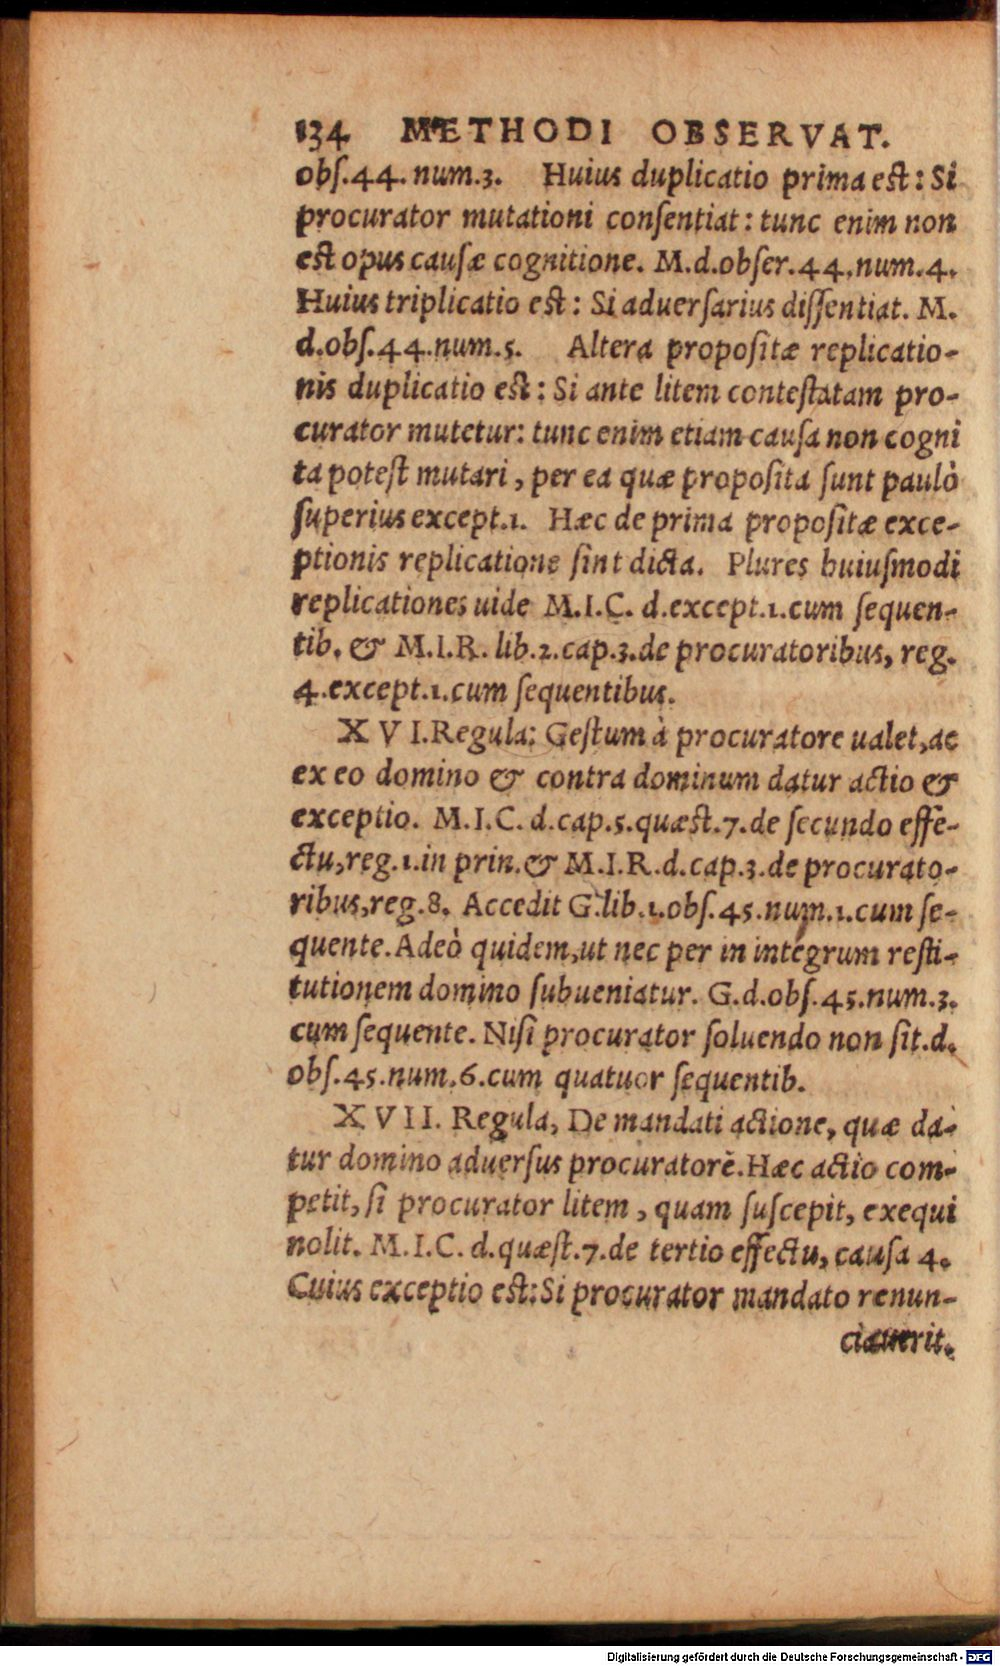 134 METHODI OBSERVAT.
obſ.44.num.3. Huius duplicatio prima eſt: Si
procurator mutationi conſentiat: tunc enim non
eſt opus cauſæ cognitione. M.d.obſer.44.num.4.
Huius triplicatio eſt: Si aduerſarius diſſentiat. M.
d.obſ.44.num.5. Altera propoſitæ replicatio-
nis duplicatio eſt: Si ante litem conteſtatam pro-
curator mutetur: tunc enim etiam cauſa non cogni
ta poteſt mutari, per ea quæ propoſita ſunt paulò
ſuperius except.1. Hæc de prima propoſitæ exce-
ptionis replicatione ſint dicta. Plures huiuſmodi
replicationes uide M.I.C. d.except.1.cum ſequen-
tib. & M.I.R. lib.2.cap.3.de procuratoribus, reg.
4.except.1.cum ſequentibus.
XVI.Regula: Geſtum à procuratore ualet,ac
ex eo domino & contra dominum datur actio &
exceptio. M.I.C. d.cap.5.quæſt.7.de ſecundo effe-
ctu,reg.1.in prin.& M.I.R.d.cap.3.de procurato-
ribus,reg.8. Accedit G.lib.1.obſ.45.num.1.cum ſe-
quente.Adeò quidem,ut nec per in integrum reſti-
tutionem domino ſubueniatur. G.d.obſ.45.num.3.
cum ſequente. Niſi procurator ſoluendo non ſit.d.
obſ.45.num.6.cum quatuor ſequentib.
XVII. Regula, De mandati actione, quæ da-
tur domino aduerſus procuratorē.Hæc actio com-
petit, ſi procurator litem, quam ſuſcepit, exequi
nolit. M.I.C. d.quæſt.7.de tertio effectu, cauſa 4.
Cuius exceptio eſt:Si procurator mandato renun-
ciauerit.
Digitalisierung gefördert durch die Deutsche Forschungsgemeinschaft - DFG